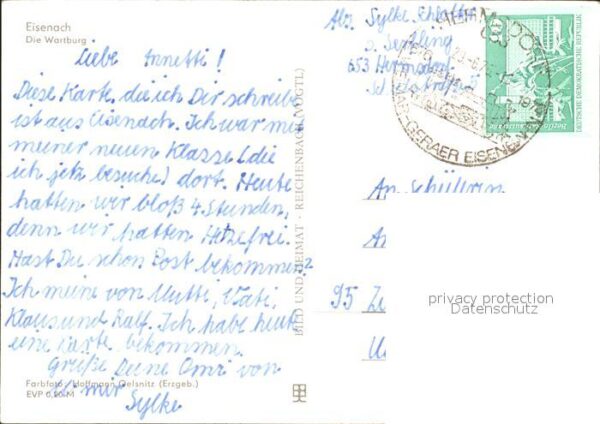 Eisenach
Die Wartburg
Liebe Annetti!
Diese Karte, die ich Dir schreibe
ist aus Eisenach. Ich war mit
meiner neuen Klasse (die
ich jetz besuche) dort. Heute
hatten wir bloß 4. Stunden,
denn wir hatten Hitzefrei.
Hast Du schon Post bekommen?
Ich meine von Mutti, Vati,
Klaus und Ralf. Ich habe heute
eine Karte bekommen.
Grüße Deine Omi von
mir
Sylke
Farbfoto: Hoffmann, Oelsnitz (Erzgeb.)
EVP 0,20 M
BILD UND HEIMAT · REICHENBACH (VOGTL)
Abs. Sylke
653 Hermsdorf
GERAER EISENB
DEUTSCHE DEMOKRATISCHE REPUBLIK
An Schülerin
An
95
privacy protection
Datenschutz